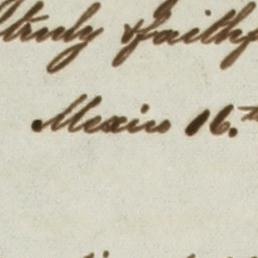 truly & faith
Mexico 16.th